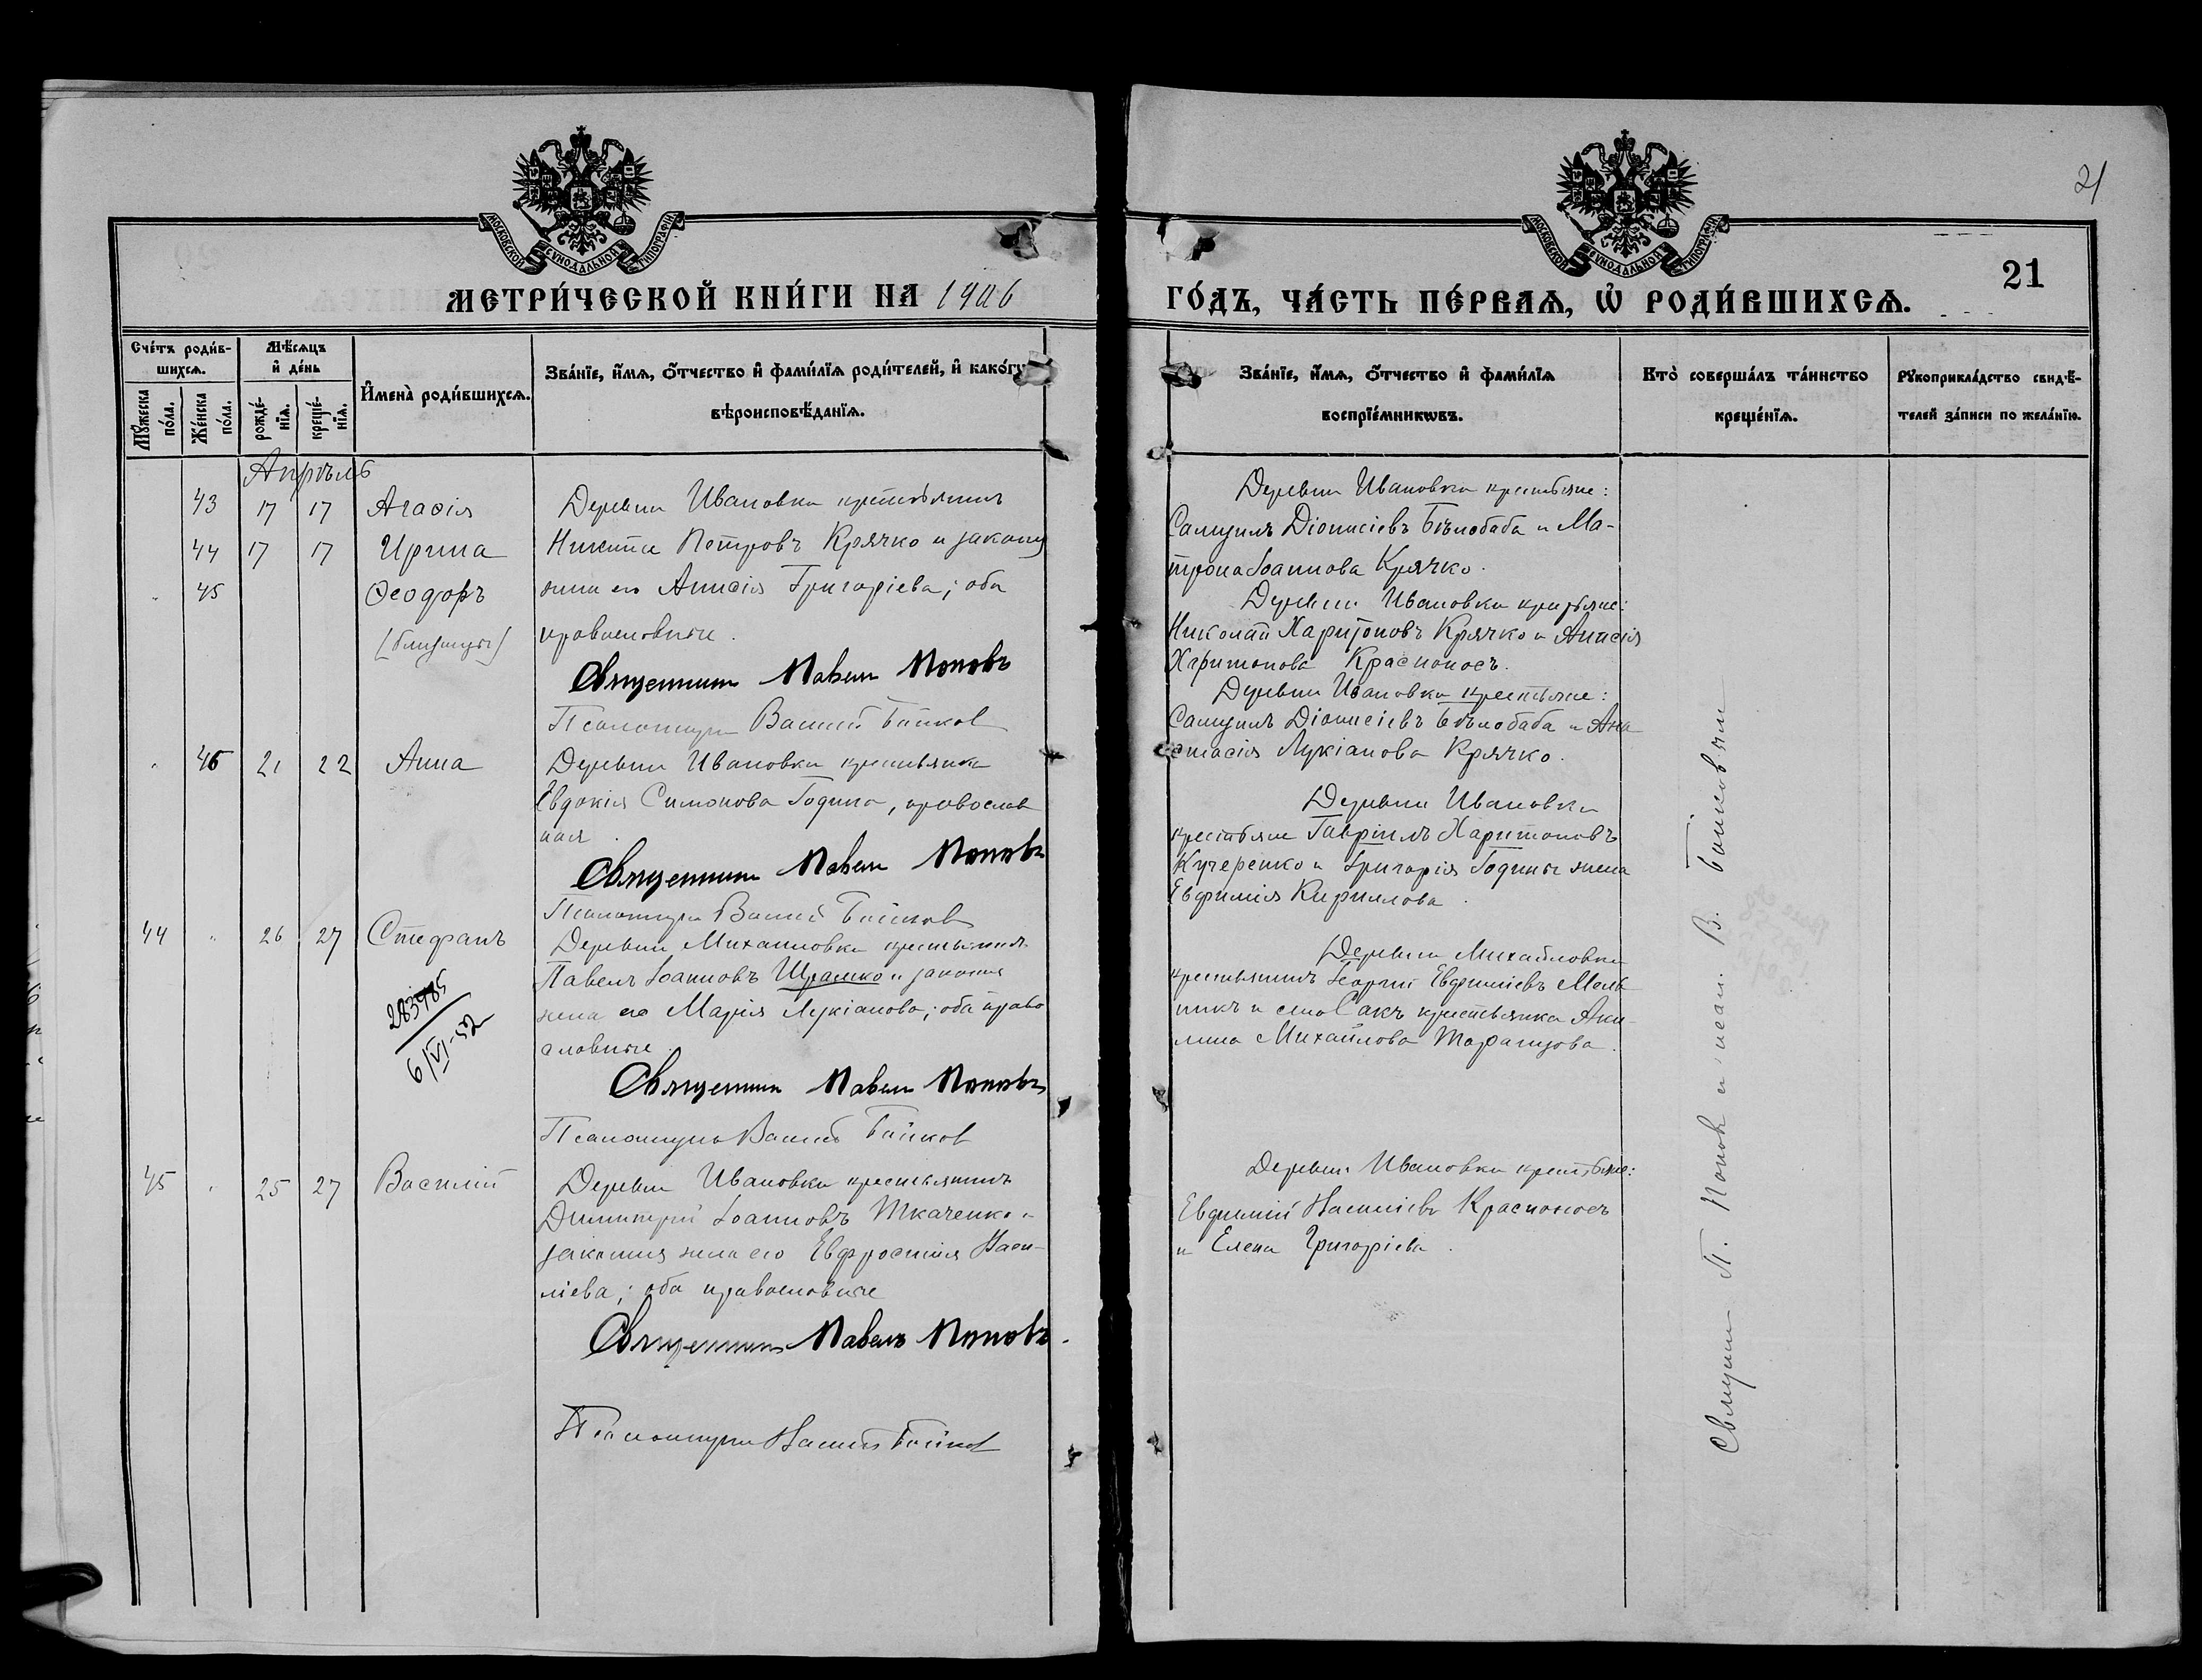 21
МОСКОВСКОЙ СѴНОДАЛЬНОЙ ТИПОГРАФІИ
МОСКОВСКОЙ СѴНОДАЛЬНОЙ ТИПОГРАФІИ
21
МЕТРИ́ЧЕСКОЙ КНИ́ГИ НА 1906
ГО́ДЪ, ЧА́СТЬ ПЕ́РВАѦ, Ѡ҆ РОДИ́ВШИХСѦ.
Сче́тъ роди́в-
шихсѧ.
Мѣ́сѧцъ
и҆ де́нь
Мꙋ́жеска по́ла.
Же́нска по́ла.
рожде́-нїѧ.
креще́-нїѧ.
И҆мена̀ роди́вшихсѧ.
Зва́нїе, и҆́мѧ, ѻ҆́тчество и҆ фами́лїѧ роди́телей, и҆ како́гѡ
вѣроисповѣ́данїѧ.
Зва́нїе, и҆́мѧ, ѻ҆́тчество и҆ фами́лїѧ
воспрїе́мникѡвъ.
Кто̀ соверша́лъ та́инство
креще́нїѧ.
Рꙋкоприкла́дство свидѣ́-
телей за́писи по жела́нїю.
Апрѣль
43 17 17 Агафія
44 17 17 Ирина
45 Ѳеодоръ
(близнецы)
Деревни Ивановки крестьянинъ
Никита Петровъ Крячко и законн
жена его Анисія Григоріева; оба
православные.
Священникъ Павелъ Поповъ
Псаломщикъ Василій Бойков
Деревни Ивановки крестьяне:
Самуилъ Діонисіевъ Бѣлобаба и Ма-
трона Іоаннова Крячко.
Деревни Ивановки крестьяне:
Николай Харитоновъ Крячко и Анисія
Харитонова Красноносъ.
Деревни Ивановки крестьяне:
Самуилъ Діонисіевъ Бѣлобаба и Ана
стасія Лукіанова Крячко.
46 21 22 Анна
Деревни Ивановки крестьянка
Евдокія Симонова Година, православ
ная.
Священникъ Павелъ Поповъ
Псаломщикъ Василій Бойков
Деревни Ивановки
крестьяне Гавріилъ Харитоновъ
Кучеренко и Григорія Годины жена
Евфимія Кириллова.
44 26 27 Стефанъ
283485
6/VI-52
Деревни Михайловки крестьянинъ
Павелъ Іоанновъ Шрамко и законная
жена его Марія Лукіанова; оба право
славные.
Священникъ Павелъ Поповъ
Псаломщикъ Василій Бойков
Деревни Михайловки
крестьянинъ Георгій Евфиміевъ Мель
никъ и Сакъ крестьянка Аки-
лина Михайлова
45 25 27 Василій
Деревни Ивановки крестьянинъ
Димитрій Іоанновъ Ткаченко и
законная жена его Евфросинія Васи-
ліева; оба православные
Священникъ Павелъ Поповъ.
Псаломщикъ Василій Бойков
Деревни Ивановки крестьяне:
Евфимій Василіевъ Красноносъ
и Елена Григоріева.
Священ. П. Попов и псал. В. Бойковъ